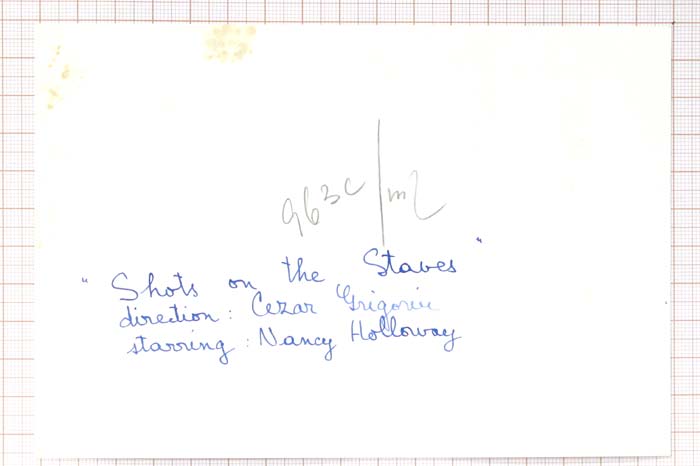 963c/m2
" Shots on the Staves "
direction : Cezar Grigoriu
starring : Nancy Holloway